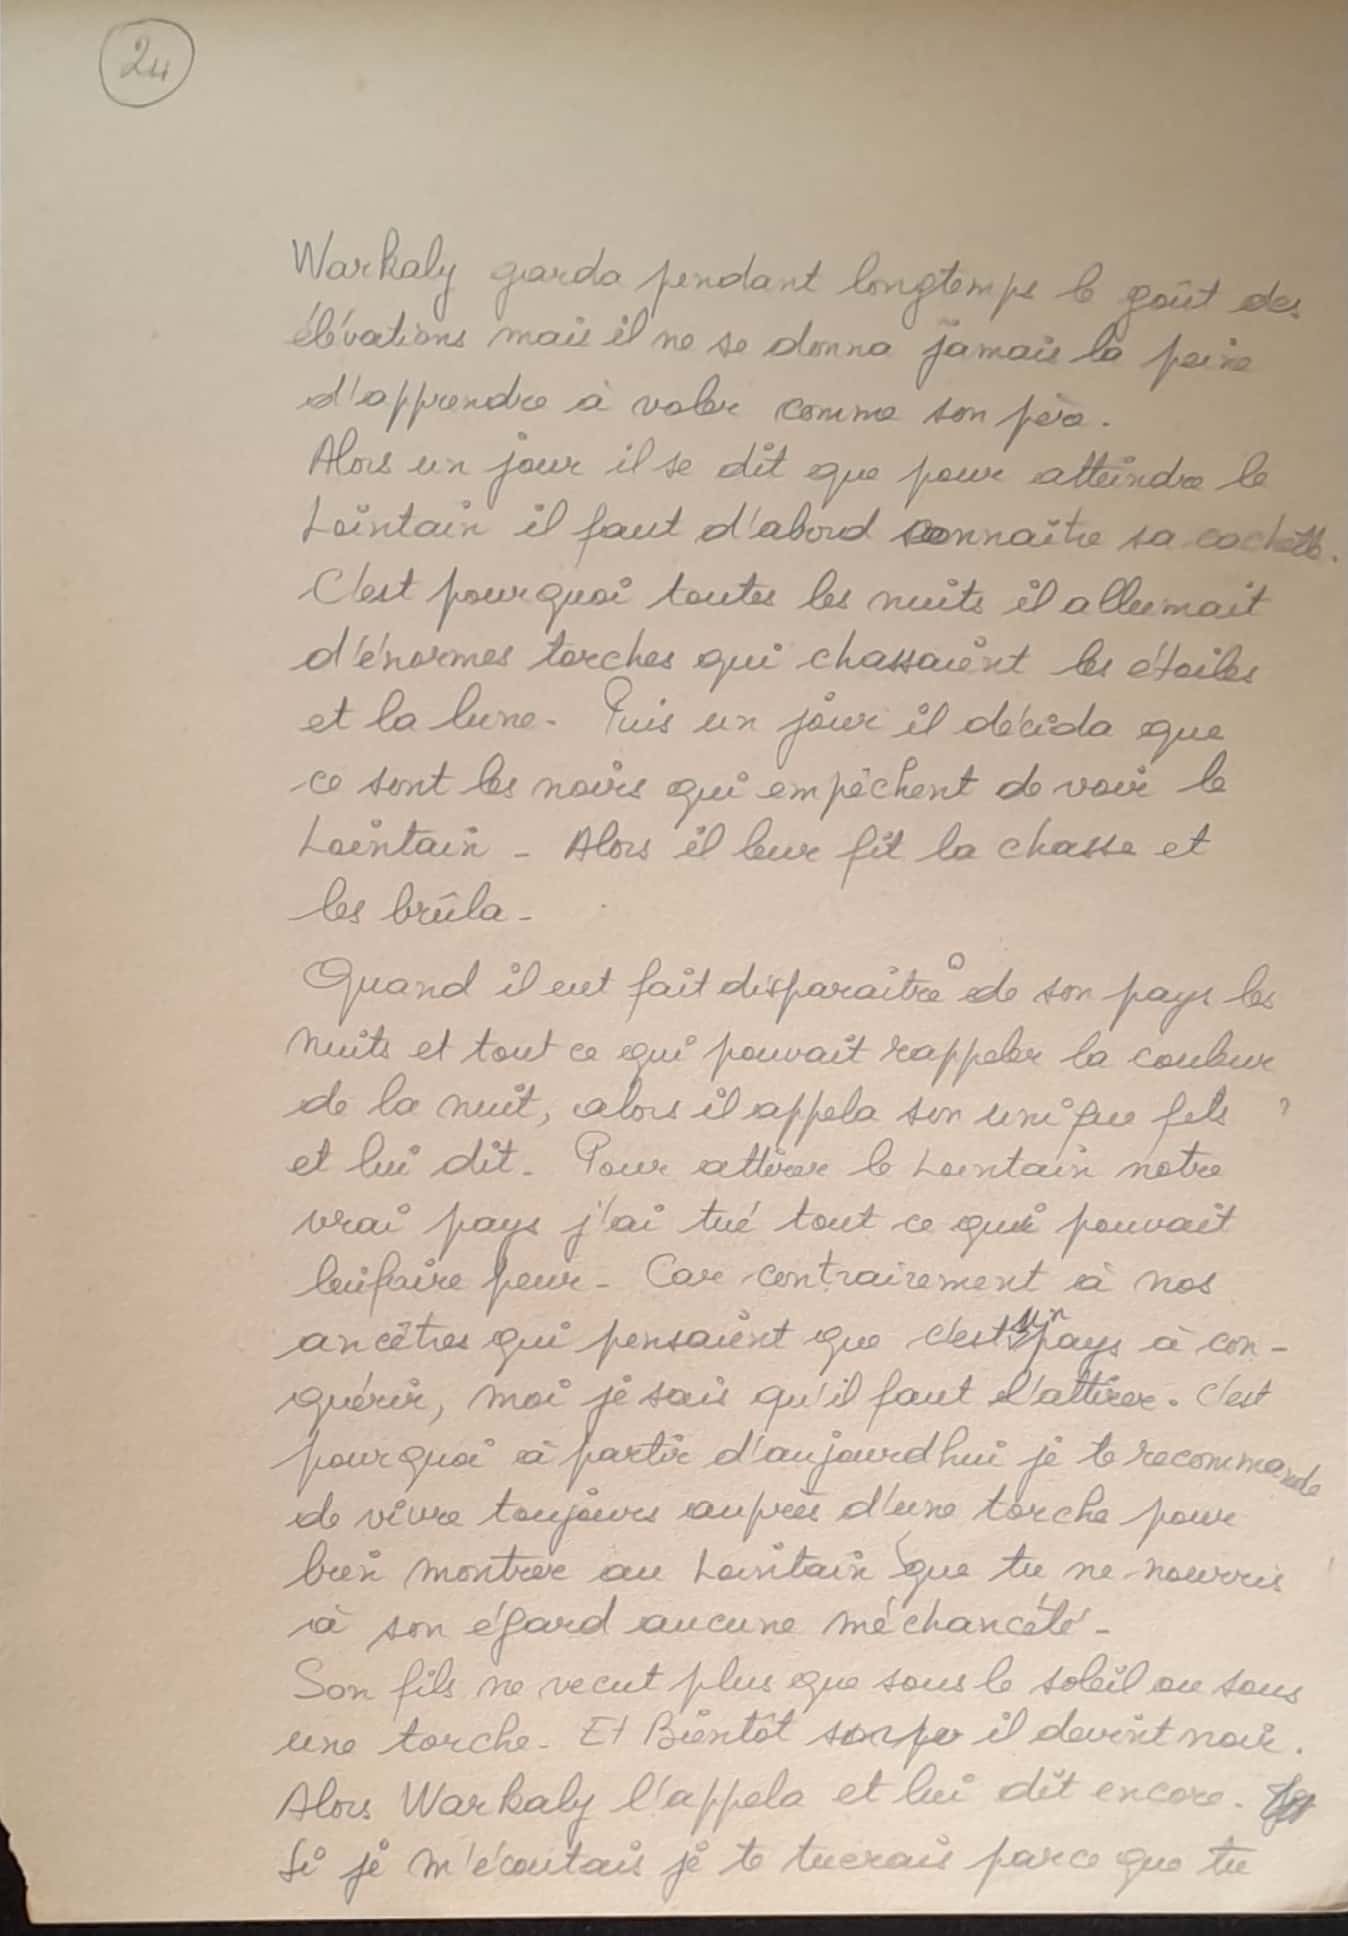 24
Warkaly garda pendant longtemps le goût des
élévations mais il ne se donna jamais la peine
d'apprendre à voler comme son père.
Alors un jour il se dit que pour atteindre le
Lointain il faut d'abord connaître sa cachette.
C'est pourquoi toutes les nuits il allumait
d'énormes torches qui chassaient les étoiles
et la lune - Puis un jour il décida que
ce sont les noirs qui empêchent de voir le
Lointain - Alors il leur fit la chasse et
les brûla -
Quand il eut fait disparaitre de son pays les
nuits et tout ce qui pouvait rappeler la couleur
de la nuit, alors il appela son unique fils
et lui dit - Pour attirer le Lointain notre
vrai pays j'ai tué tout ce qui pouvait
lui faire peur - Car contrairement à nos
ancêtres qui pensaient que c'est un pays à con-
quérir, moi je sais qu'il faut l'attirer. C'est
pourquoi à partir d'aujourd'hui je te recommande
de vivre toujours auprès d'une torche pour
bien montrer au Lointain que tu ne nourris
à son égard aucune méchanceté -
Son fils ne vecut plus que sous le soleil ou sous
une torche - Et Bientôt il devint noir.
Alors Warkaly l'appela et lui dit encore -
Si je m'écoutais je te tuerais parce que tu